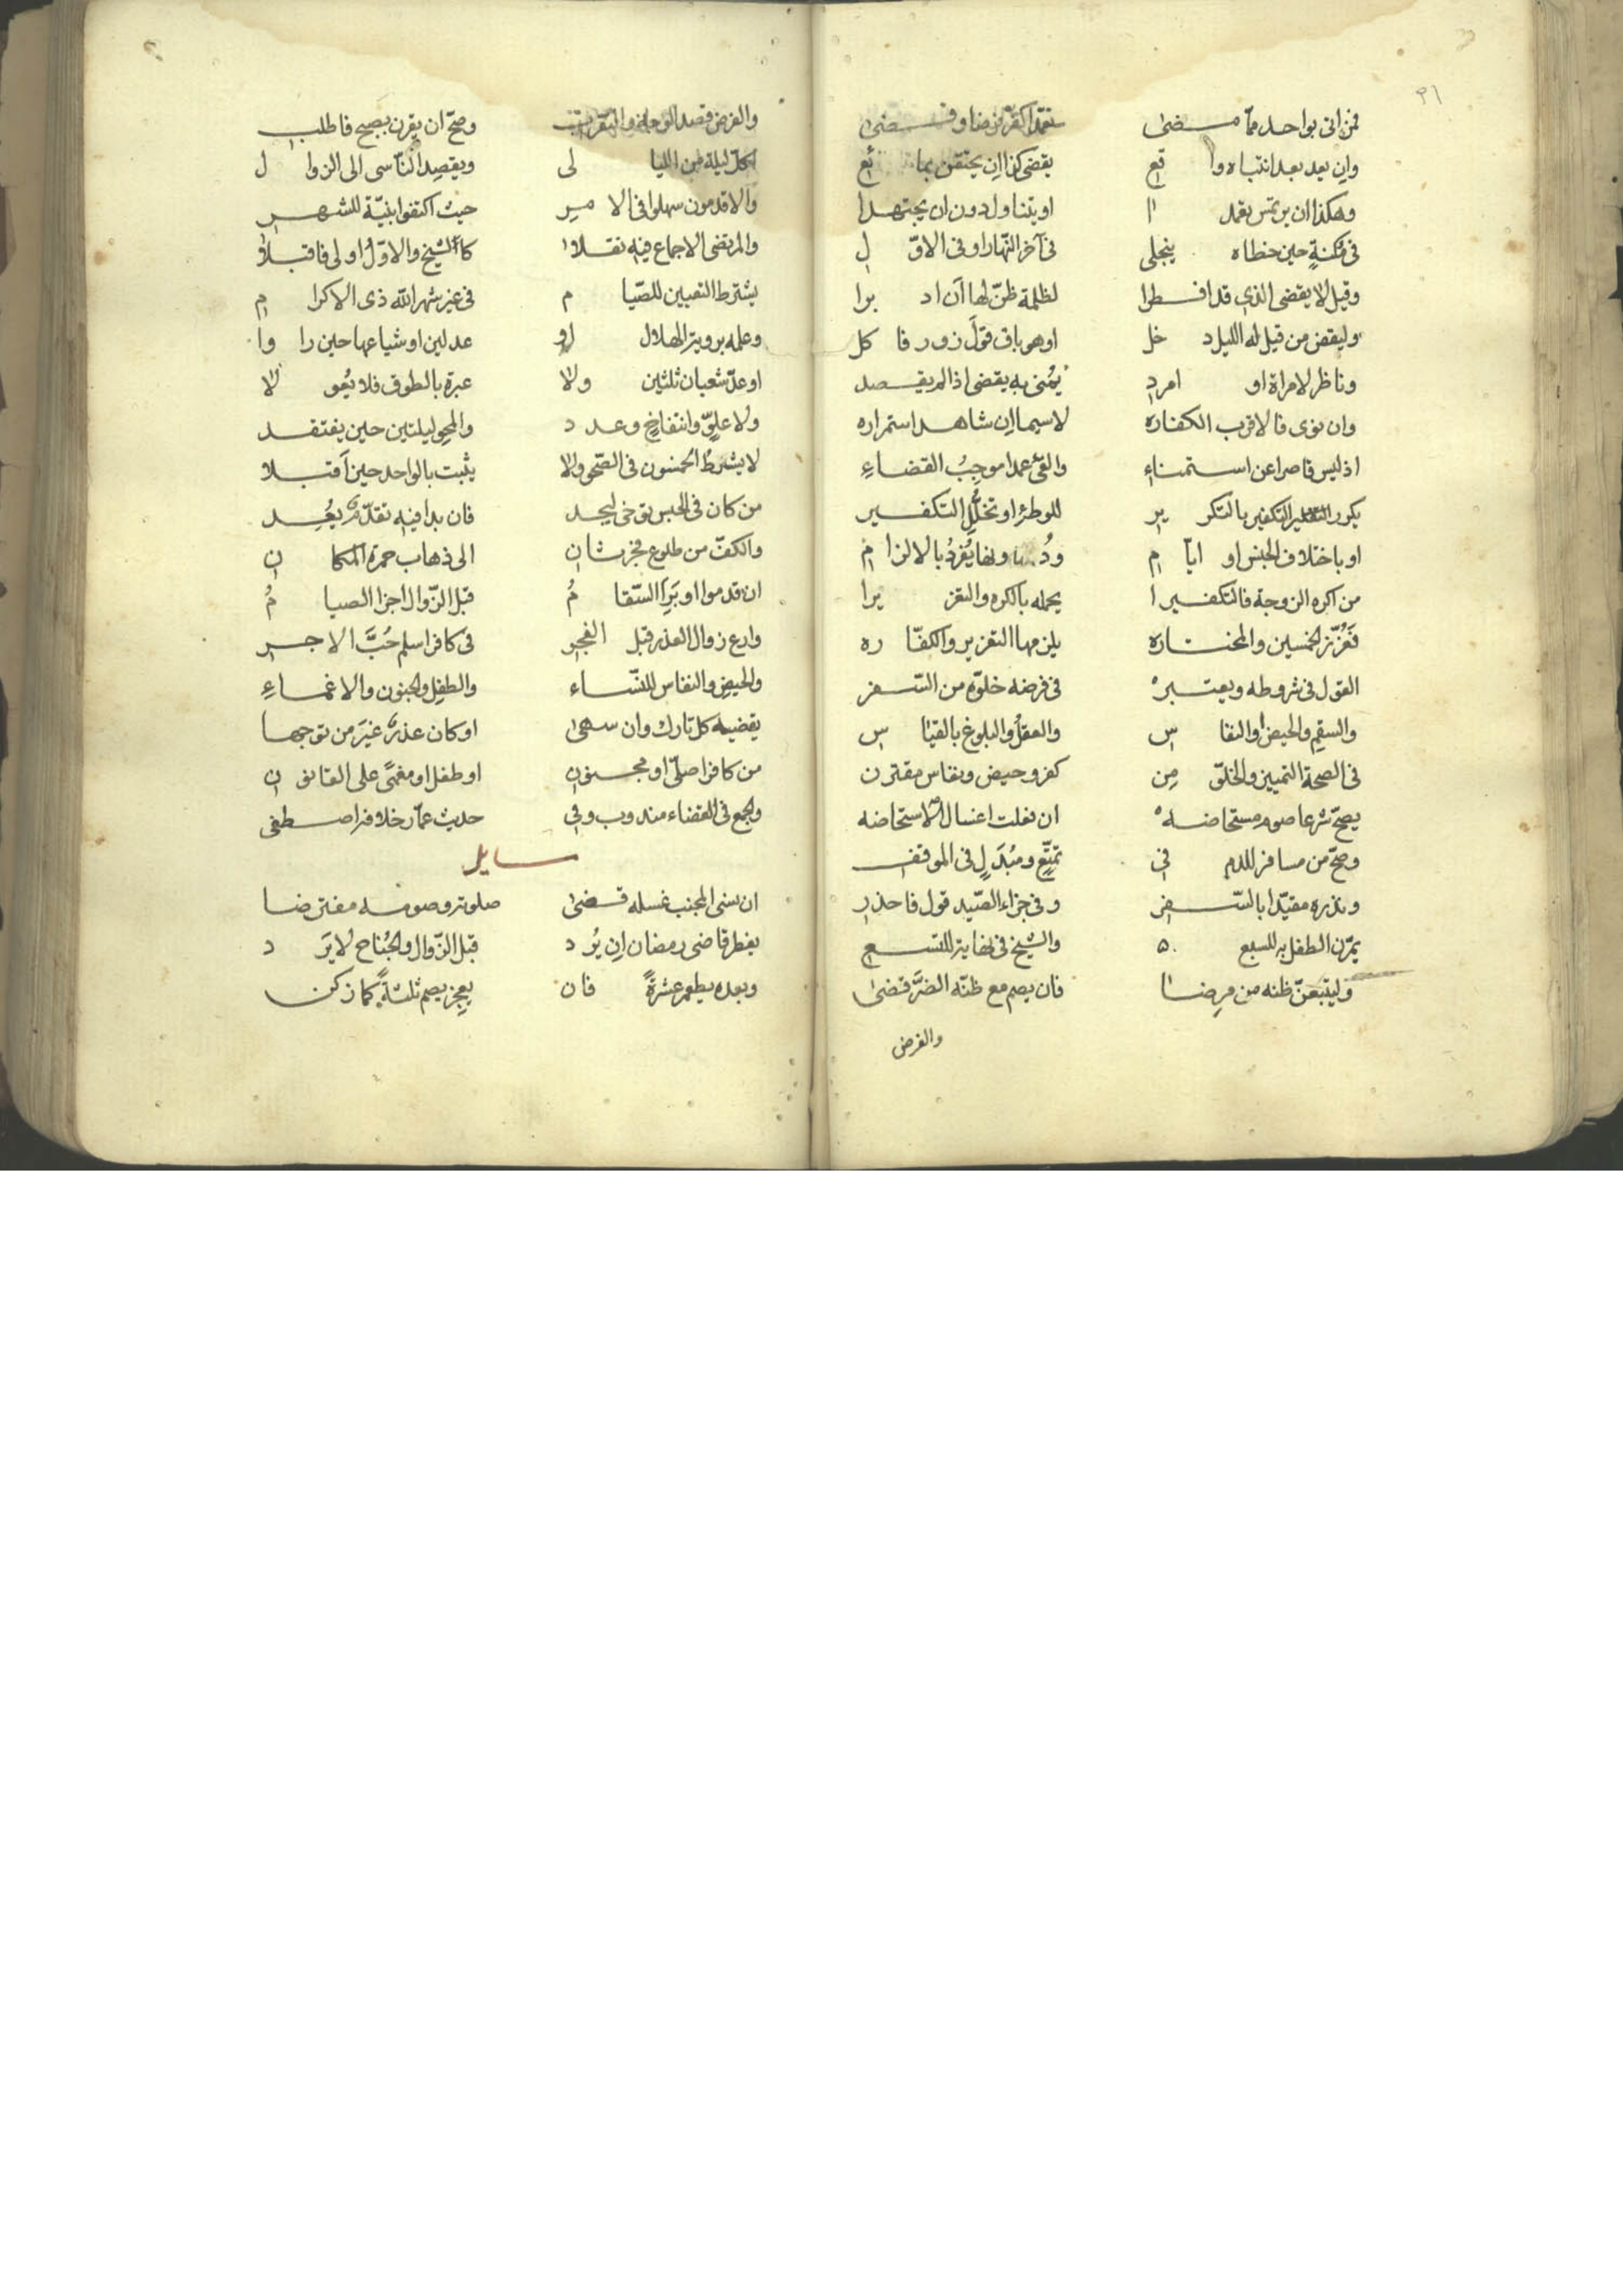 ٣١
فمن اتى بواحد مما مضى تعمدا كفر فرضا وقضى
وان يعد بعد انتباه واقع يقضى كذا ان يحتقن بمائع
وهكذا ان يرتمس تعمدا او يتناول دون ان يجتهدا
فى مكنة حين خطاه ينجلى فى آخر النهار او فى الاول
وقيل لا يقضى الذى قد افطرا لظلمة ظن لها ان ادبرا
وليقض من قيل له الليل دخل او هو باق قول زور فاكل
وناظر لامراة او امرد يمنى به يقضى اذا لم يقصد
وان نوى فالاقرب الكفاره لاسيما ان شاهد استمراره
اذ ليس قاصرا عن استمناء والقئ عمدا موجب القضاء
يكرر التكفير بالتكرير للوطئ او تخلل التكفير
او باختلاف الجنس او ايام ونها يفرد بالالزام
من اكره الزوجة فالتكفيرا يحمله بالكره والتعزيرا
فعزز خمسين والمختاره يلزمها التعزير والكفاره
القول فى شروطه ويعتبر فى فرضه خلوه من السفر
والسقم والحيض والنفاس والعقل والبلوغ بالقياس
فى الصحة التمييز والخلق من كفر وحيض ونفاس مقترن
يصح شرعا صوم مستحاضه ان فعلت اغسال الاستحاضه
وصح من مسافر للدم فى تمتع ومبدل فى الموقف
ونذره مقيدا بالسفر وفى جزاء الصيد قول فاحذر
يمرن الطفل به للسبع والشيخ فى نهايته للتسع
وليتبعن ظنه من مرضا فان يصم مع ظنه الضر قضى
والفرض
والفرض قصد الوجه والتقرب وصح ان يقرن بصبح فاطلب
لكل ليلة من الليالى ويقصد الناسى الى الزوال
والاقدمون سهلوا فى الامر حيث اكتفوا بنية للشهر
والمرتضى الاجماع فيه نقلا كالشيخ والاول اولى فاقبلا
يشترط التعيين للصيام فى غير شهر الله ذى الاكرام
وعلمه برويته الهلال او عدلين او شياعها حين راوا
او عد شعبان ثلثين ولا عبرة بالطوق فلا يعولا
ولا علو وانتفاخ وعدد والمحو ليلتين حين يفتقد
لا يشرط الخمسون فى الصحو ولا يثبت بالواحد حين اقبلا
من كان فى الحبس توخى ليجد فان بدا فيه تقدم يعد
والكف من طلوع فجر ثان الى ذهاب حمرة المكان
ان قدموا او برا السقام قبل الزوال اجزا الصيام
وارع زوال العذر قبل الفجر فى كافر اسلم حب الاجر
والحيض والنفاس للنساء والطفل والجنون والاغماء
يقضيه كل تارك وان سهى او كان عذره غير من توجها
من كافر اصلى او مجنون او طفل او مغمى على القانون
والجمع فى القضاء مندوب وفى حديث عمار خلافه اصطفى
مسايل
ان نسى المجنب غسله قضى صلوته وصومه مفترضا
يفطر قاضى رمضان ان يرد قبل الزوال والجناح لا يرد
وبعده يطعم عشرة فان يعجز يصم ثلثة كما زكن